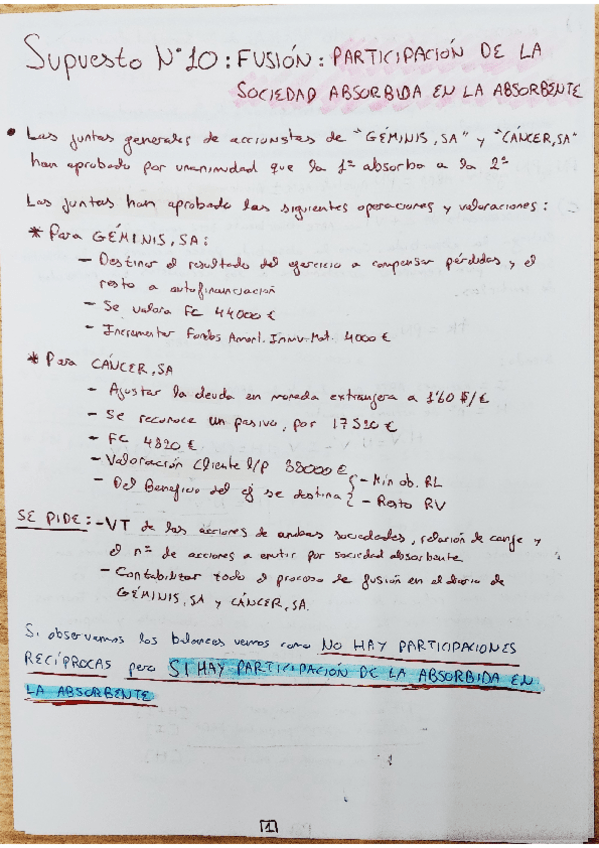 Supuesto Nº 10: FUSIÓN: PARTICIPACIÓN DE LA
SOCIEDAD ABSORBIDA EN LA ABSORBENTE
• Las juntas generales de accionistas de "GÉMINIS, SA" y "CÁNCER, SA"
han aprobado por unanimidad que la 1ª absorba a la 2ª
Las juntas han aprobado las siguientes operaciones y valoraciones:
* Para GÉMINIS, SA:
- Destinar el resultado del ejercicio a compensar pérdidas y el
resto a autofinanciación
- Se valora FC 44000 €
- Incrementar Fondos Amort. Inmv. Mat. 4000 €
* Para CÁNCER, SA
- Ajustar la deuda en moneda extranjera a 1'60 $/€
- Se reconoce un pasivo, por 17520 €
- FC 4820 €
- Valoración cliente l/p 38000 €
- Del Beneficio del ej se destina { - Min ob. RL
- Resto RV
SE PIDE: - VT de las acciones de ambas sociedades, relación de canje y
el nº de acciones a emitir por sociedad absorbente
- Contabilizar todo el proceso de fusión en el diario de
GÉMINIS, SA y CÁNCER, SA.
Si observamos los balances vemos como NO HAY PARTICIPACIONES
RECÍPROCAS pero SI HAY PARTICIPACIÓN DE LA ABSORBIDA EN
LA ABSORBENTE
1